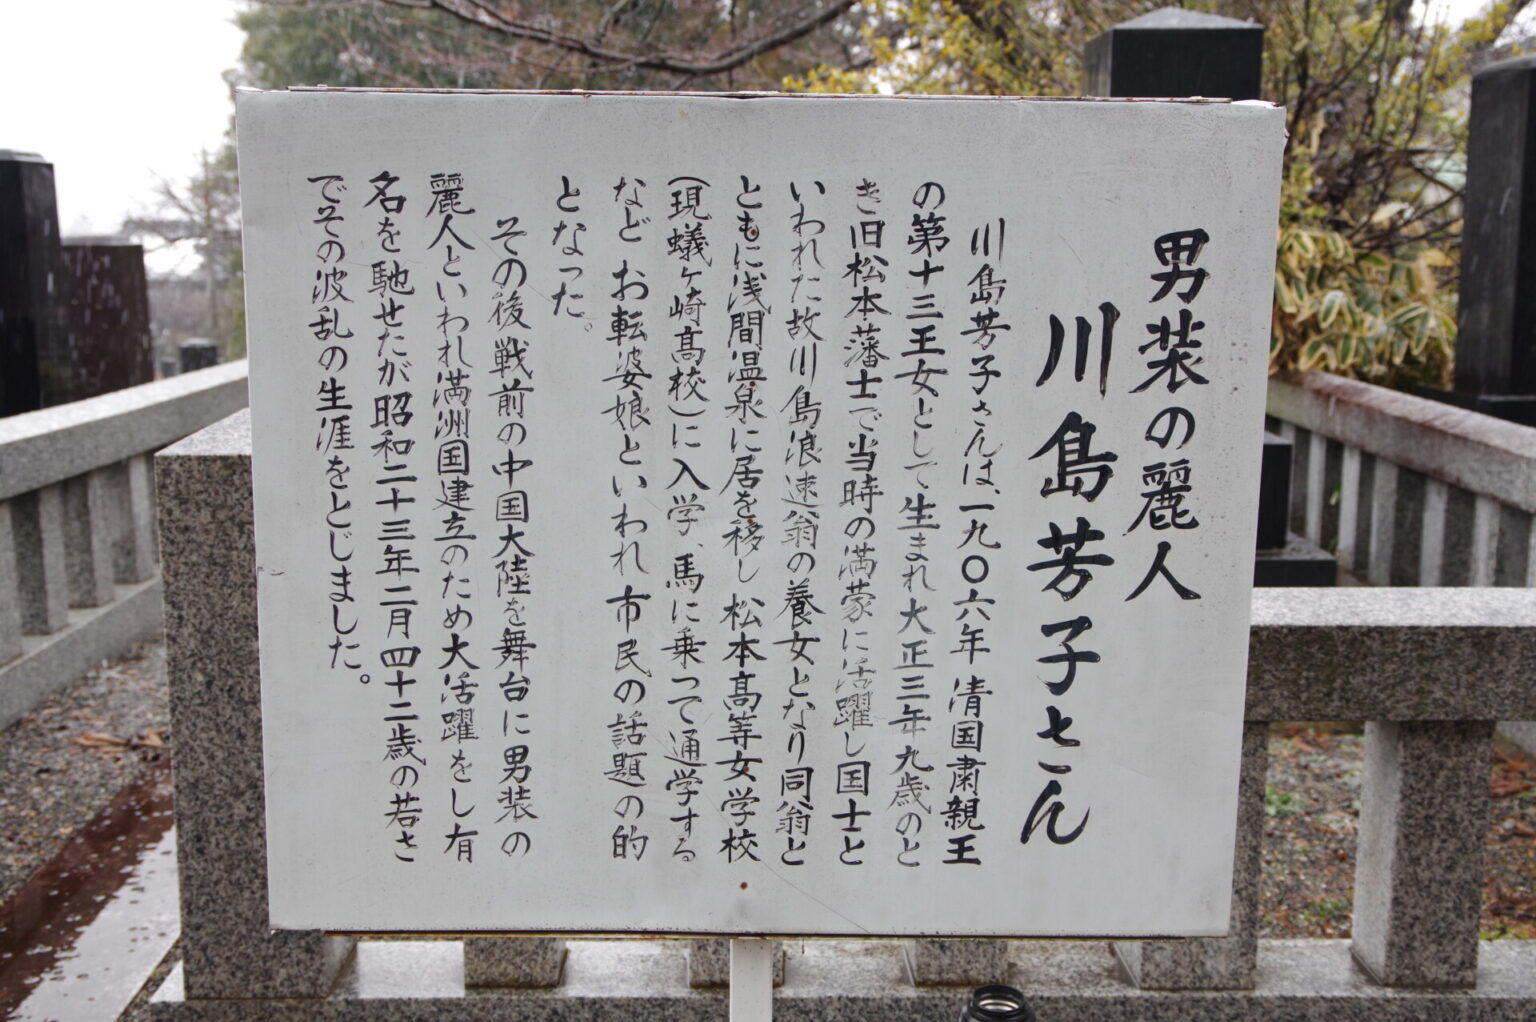 男装の麗人
川島芳子さん
川島芳子さんは、一九〇六年清国粛親王
の第十三王女として生まれ大正三年九歳のと
き旧松本藩士で当時の満蒙に活躍し国士と
いわれた故川島浪速翁の養女となり同翁と
ともに浅間温泉に居を移し松本高等女学校
(現蟻ヶ崎高校)に入学、馬に乗って通学する
などお転婆娘といわれ市民の話題の的
となった。
その後戦前の中国大陸を舞台に男装の
麗人といわれ満洲国建立のため大活躍をし有
名を馳せたが昭和二十三年二月四十二歳の若さ
でその波乱の生涯をとじました。